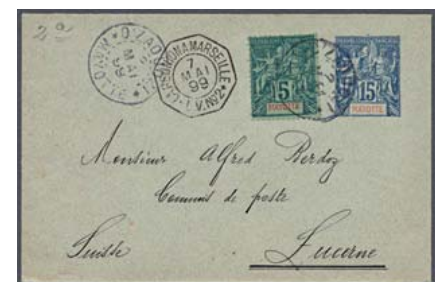 DZAOUDZI
MAYOTTE
MAI
99
LA RÉUNION A MARSEILLE
7
MAI
99
L.V. Nº2
5
MAYOTTE
15
MAYOTTE
Monsieur Alfred Berdoz
Commis de poste
Suisse
Lucerne